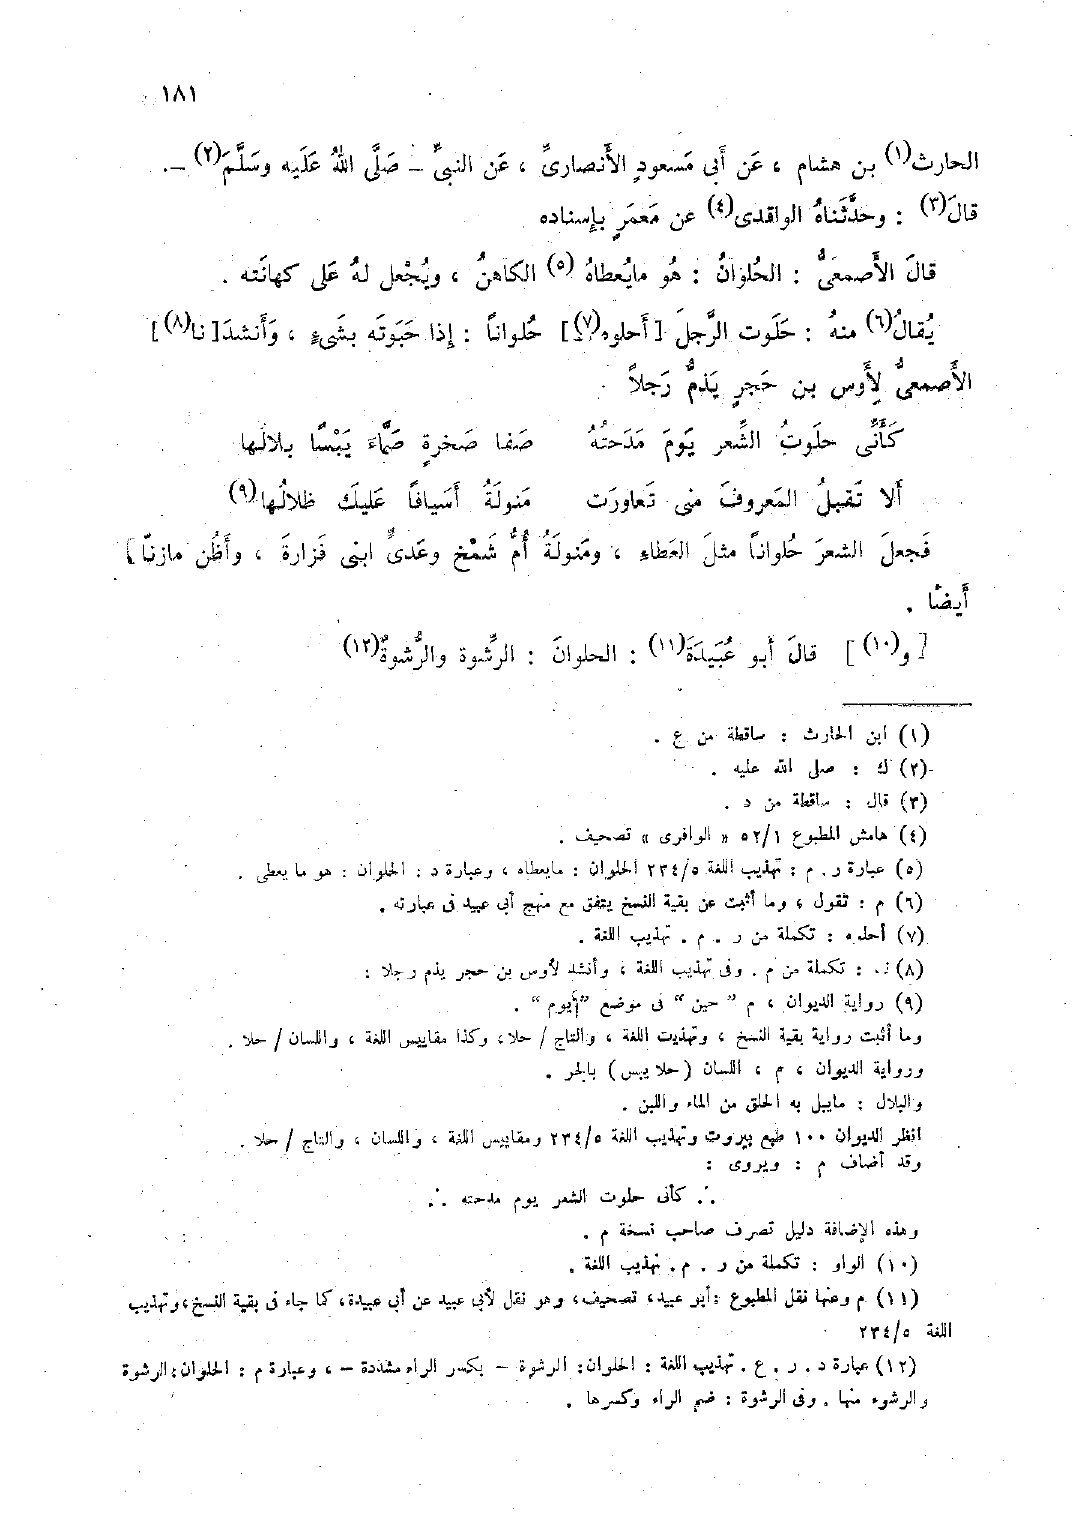 ١٨١
الحارث(١) بن هشام ، عَن أَبى مَسعودٍ الأَنصارىِّ ، عَن النبىِّ – صَلَّى اللهُ عَلَيه وسَلَّمَ(٢) –.
قالَ(٣) : وحدَّثَناهُ الواقدى(٤) عن مَعمَرٍ بإسناده
قالَ الأَصمعىُّ : الحُلوانُ : هُو مايُعطاهُ (٥) الكاهنُ ، ويُجْعل لهُ عَلى كهانَته .
يُقالُ(٦) منهُ : حَلَوت الرَّجلَ [أحلوه(٧)] حُلواناً : إذا حَبَوتَه بشَىءٍ ، وَأَنشدَ[نا(٨)]
الأَصمعىُّ لِأَوس بن حَجرٍ يَذمُّ رَجلاً
كَأَنِّى حلَوتُ الشِّعر يَومَ مَدَحتُهُ صَفا صَخرةٍ صَمَّاءَ يَبْسًا بلالُها
أَلا تَقبلُ المَعروفَ منى تَعاورَت مَنولَةُ أَسيافًا عَليكَ ظلالُها(٩)
فَجعلَ الشعرَ حُلواناً مثلَ العَطاءِ ، ومَنولَةُ أُمُّ شَمْخ وعَدىٍّ ابنى فَزارةَ ، وأَظُن مازنًا]
أَيضًا .
[و(١٠)] قالَ أَبو عُبَيدَةَ(١١) : الحلوانَ : الرِّشوة والرُّشوةُ(١٢)
(١) ابن الحارث : ساقطة من ع .
(٢) ك : صلى الله عليه .
(٣) قال : ساقطة من د .
(٤) هامش المطبوع ٥٢/١ « الوافرى » تصحيف .
(٥) عبارة ر . م : تهذيب اللغة ٢٣٤/٥ الحلوان : مايعطاه ، وعبارة د : الحلوان : هو ما يعطى .
(٦) م : تقول ، وما أثبت عن بقية النسخ يتفق مع منهج أبى عبيد فى عبارته .
(٧) أحلوه : تكملة من ر . م . تهذيب اللغة .
(٨) نا : تكملة من م . وفى تهذيب اللغة ، وأنشد لأوس بن حجر يذم رجلا :
(٩) رواية الديوان ، م “ حين “ فى موضع “يوم“ .
وما أثبت رواية بقية النسخ ، وتهذيت اللغة ، والتاج / حلا، وكذا مقاييس اللغة ، واللسان / حلا .
ورواية الديوان ، م ، اللسان (حلا يبس) بالجر .
والبلال : مايبل به الحلق من الماء واللبن .
انظر الديوان ١٠٠ طبع بيروت وتهذيب اللغة ٢٣٤/٥ ومقاييس اللغة ، واللسان ، والتاج / حلا .
وقد أضاف م : ويروى :
∴ كأنى حلوت الشعر يوم مدحته ∴
وهذه الإضافة دليل تصرف صاحب نسخة م .
(١٠) الواو : تكملة من ر . م. تهذيب اللغة .
(١١) م وعنها نقل المطبوع :أبو عبيد، تصحيف، وهو نقل لأبى عبيد عن أبى عبيدة، كما جاء فى بقية النسخ،وتهذيب
اللغة ٢٣٤/٥
(١٢) عبارة د . ر . ع . تهذيب اللغة : الحلوان: الرشوة – بكسر الراء مشددة – ، وعبارة م : الحلوان:الرشوة
والرشوء منها . وفى الرشوة : ضم الراء وكسرها .